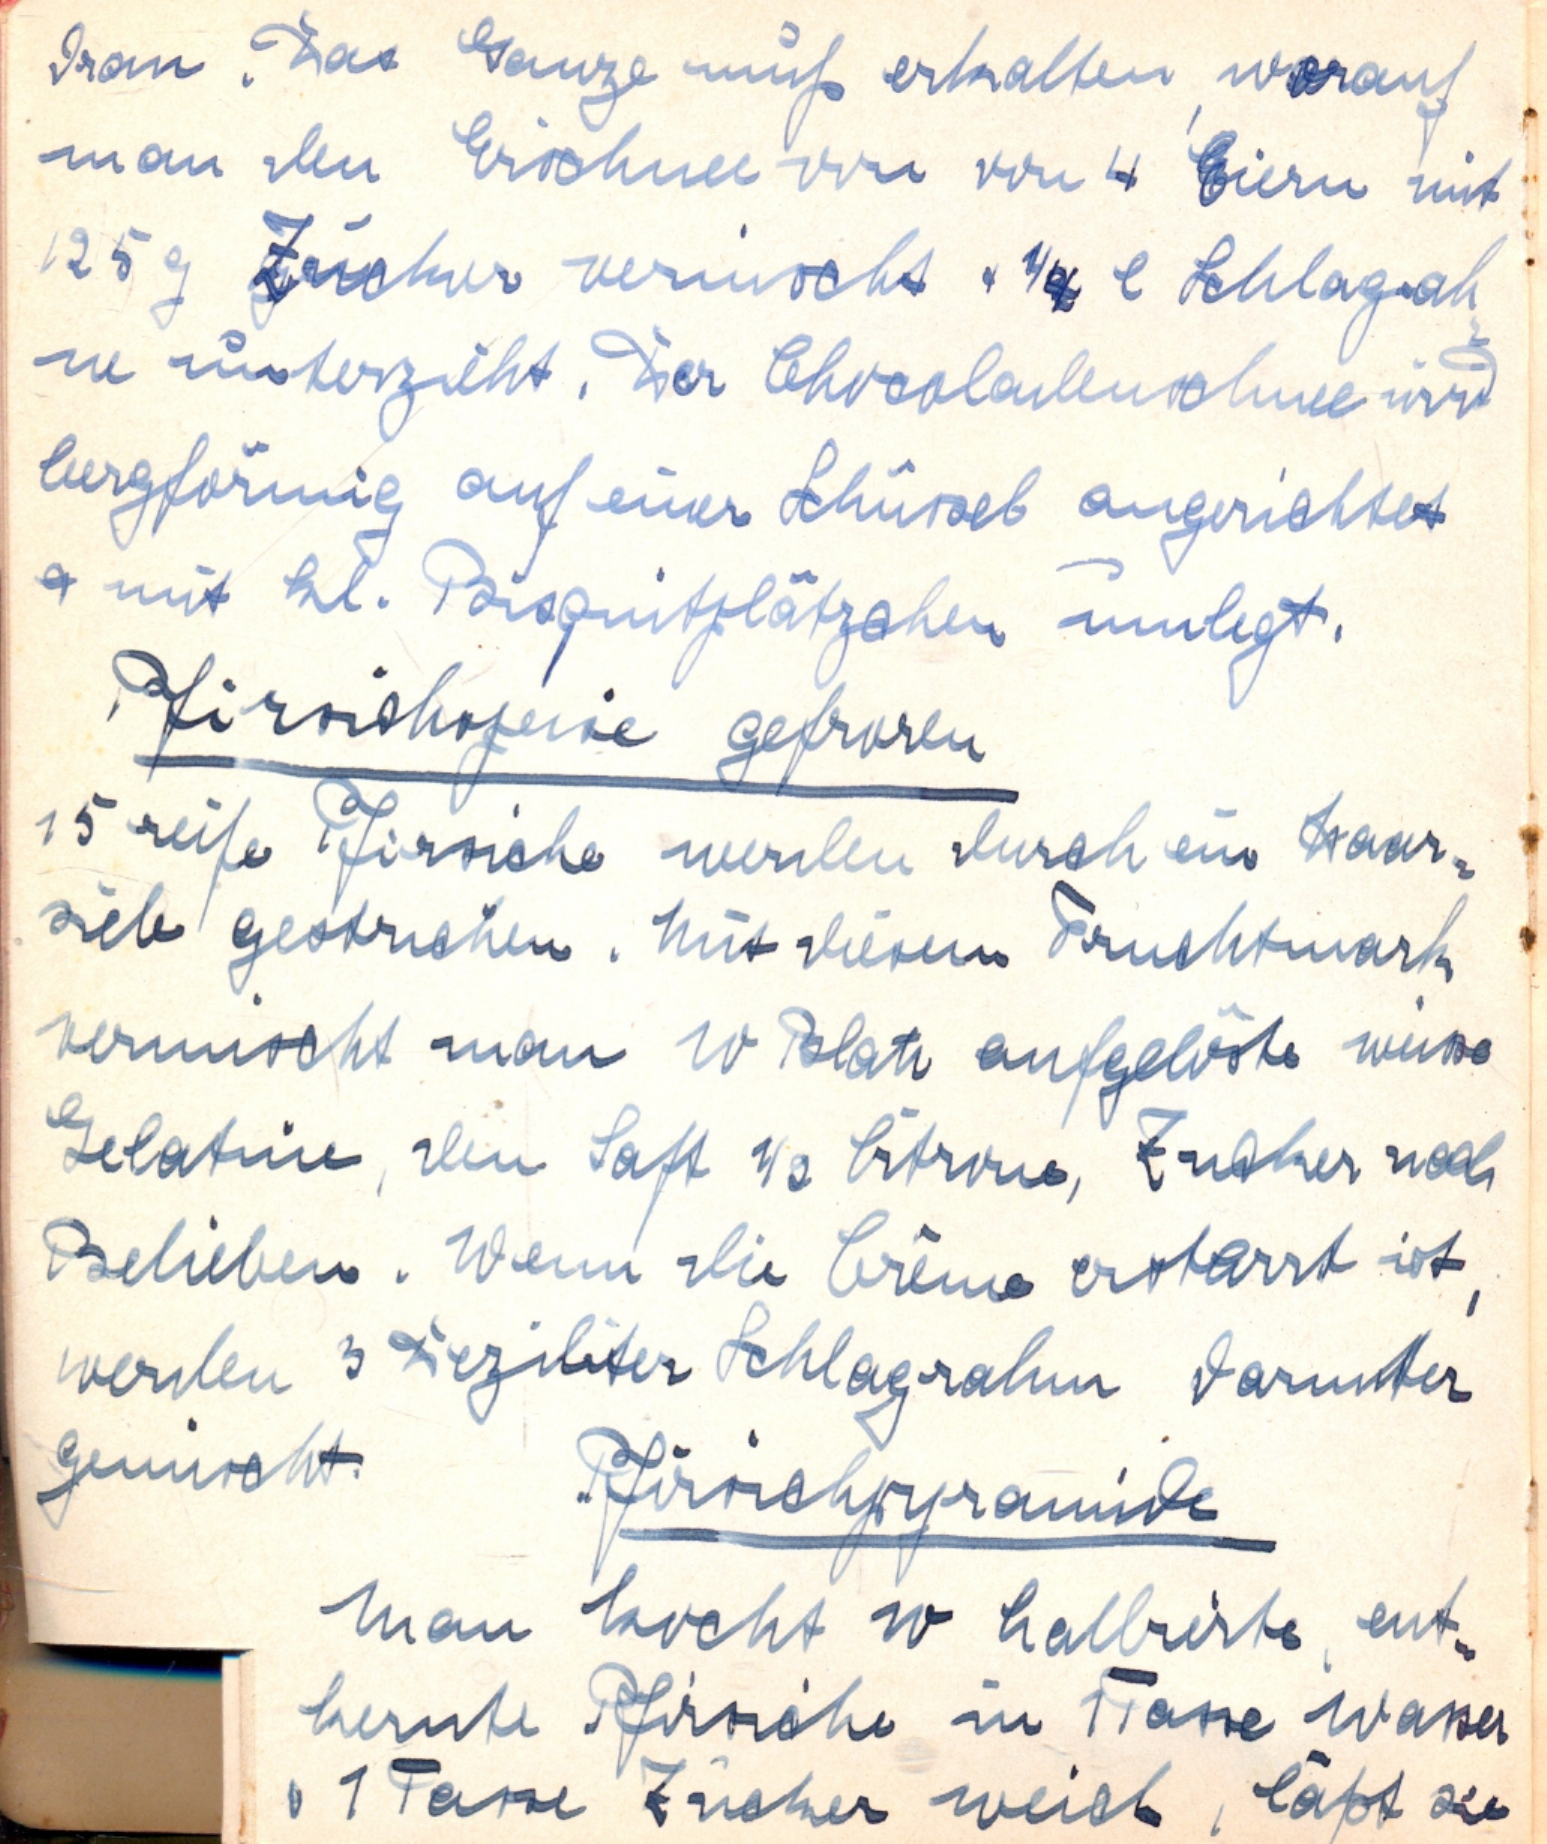 dran. Das Ganze muß erkalten, worauf
man den Eischnee von von 4 Eiern mit
125 g Zucker vermischt & l Schlagsah-
ne unterzieht. Der Chocoladenschnee wird
bergförmig auf einer Schüssel angerichtet
& mit kl. Bisquitplätzchen umlegt.
Pfirsichspeise gefroren
15 reife Pfirsiche werden durch ein Haar-
sieb gestrichen. Mit diesem Fruchtmark
vermischt man 10 Blatt aufgelöste weisse
Gelatine, den Saft 1/2 Citrone, Zucker nach
Belieben. Wenn die Crême erstarrt ist,
werden 3 Deziliter Schlagrahm darunter
gemischt.
Pfirsichpyramide
Man kocht 10 halbierte, ent-
kernte Pfirsiche in 1 Tasse Wasser
& 1 Tasse Zucker weich, läßt sie